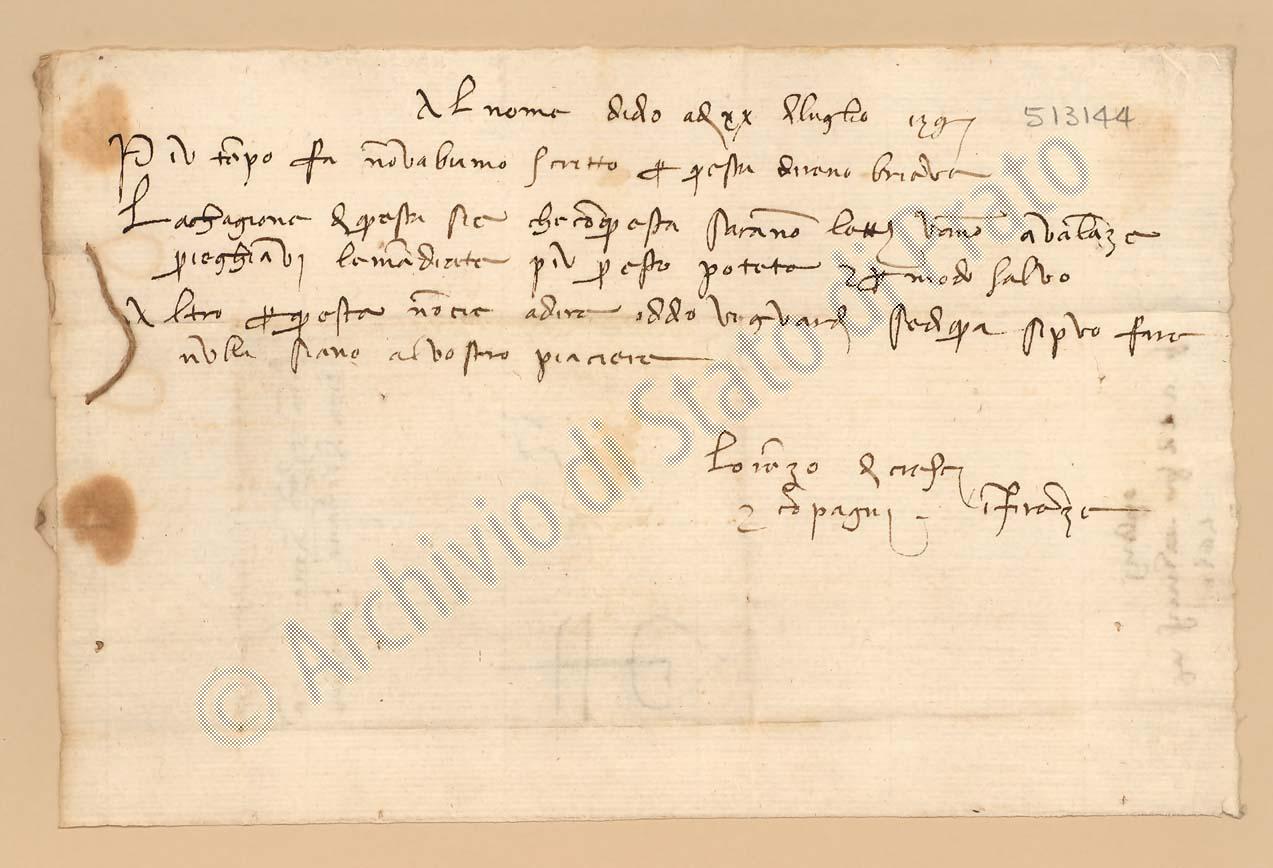 Al nome dido adj xx di luglio 139 513144
Piv tenpo fa novabiamo scritto per questa direno brieve
La chagione di questa sie che con questa sarano lettj vano a valenze
preghianvi le mandiate piv presto potete e per modo salvo
Altro per questa nonciè a dire iddo vi guardj se di qua si puo fare
nulla siano al vostro piaciere
Lorenzo di
e conpagni in Firenze
© Archivio di Stato di Prato